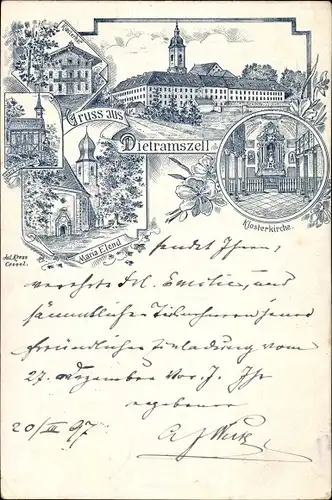 Gruss aus
Dietramszell
Klosterkirche.
Maria Elend
sendet Ihnen,
verehrtes Frl. Emilie, und
sämmtlicher
freundlicher Einladung vom
27. Dezember vor. J. Ihr
ergebener
20/III 97